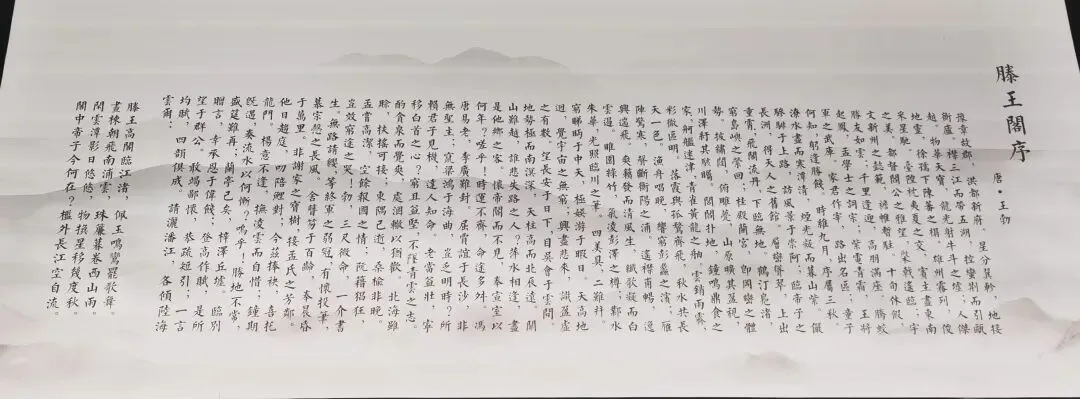 滕王閣序
唐·王勃
豫章故郡,洪都新府。星分翼軫,地接
衡廬。襟三江而帶五湖,控蠻荆而引甌
越。物華天寶,龍光射牛斗之墟;人傑
地靈,徐孺下陳蕃之榻。雄州霧列,俊
采星馳。臺隍枕夷夏之交,賓主盡東南
之美。都督閻公之雅望,棨戟遙臨;宇
文新州之懿範,襜帷暫駐。十旬休假,
勝友如雲;千里逢迎,高朋滿座。騰蛟
起鳳,孟學士之詞宗;紫電青霜,王將
軍之武庫。家君作宰,路出名區;童子
何知,躬逢勝餞。 時維九月,序屬三秋。
潦水盡而寒潭清,煙光凝而暮山紫。儼
驂騑于上路,訪風景于崇阿;臨帝子之
長洲,得天人之舊館。層巒聳翠,上出
重霄;飛閣流丹,下臨無地。鶴汀鳧渚,
窮島嶼之縈回;桂殿蘭宮,即岡巒之體
勢。披繡闥,俯雕甍,山原曠其盈視,
川澤紆其駭矚。閭閻扑地,鐘鳴鼎食之
家;舸艦迷津,青雀黃龍之舳。雲銷雨霽,
彩徹區明。落霞與孤鶩齊飛,秋水共長
天一色。漁舟唱晚,響窮彭蠡之濱;雁
陣驚寒,聲斷衡陽之浦。 遙襟甫暢,逸
興遄飛。爽籟發而清風生,纖歌凝而白
雲遏。睢園綠竹,氣凌彭澤之樽;鄴水
朱華,光照臨川之筆。四美具,二難并。
窮睇眄于中天,極娛游于暇日。天高地
迥,覺宇宙之無窮;興盡悲來,識盈虛
之有數。望長安于日下,目吳會于雲間。
地勢極而南溟深,天柱高而北辰遠。關
山難越,誰悲失路之人?萍水相逢,盡
是他鄉之客。懷帝閽而不見,奉宣室以
何年?嗟乎!時運不齊,命途多舛。馮
唐易老,李廣難封。屈賈誼于長沙,非
無聖主;竄梁鴻于海曲,豈乏明時?所
賴君子見機,達人知命。老當益壯,寧
移白首之心?窮且益堅,不墜青雲之志。
酌貪泉而覺爽,處涸轍以猶歡。北海雖
賒,扶搖可接;東隅已逝,桑榆非晚。
孟嘗高潔,空餘報國之情;阮籍猖狂,
豈效窮途之哭!勃,三尺微命,一介書
生。無路請纓,等終軍之弱冠;有懷投筆,
慕宗愨之長風。舍簪笏于百齡,奉晨昏
于萬里。非謝家之寶樹,接孟氏之芳鄰。
他日趨庭,叨陪鯉對;今茲捧袂,喜托
龍門。楊意不逢,撫凌雲而自惜;鍾期
既遇,奏流水以何慚?嗚乎!勝地不常,
盛筵難再;蘭亭已矣,梓澤丘墟。臨別
贈言,幸承恩于偉餞;登高作賦,是所
望于群公。敢竭鄙懷,恭疏短引;一言
均賦,四韻俱成。請灑潘江,各傾陸海
雲爾:
滕王高閣臨江渚,佩玉鳴鸞罷歌舞。
畫棟朝飛南浦雲,珠簾暮卷西山雨。
閑雲潭影日悠悠,物換星移幾度秋。
閣中帝子今何在?檻外長江空自流。